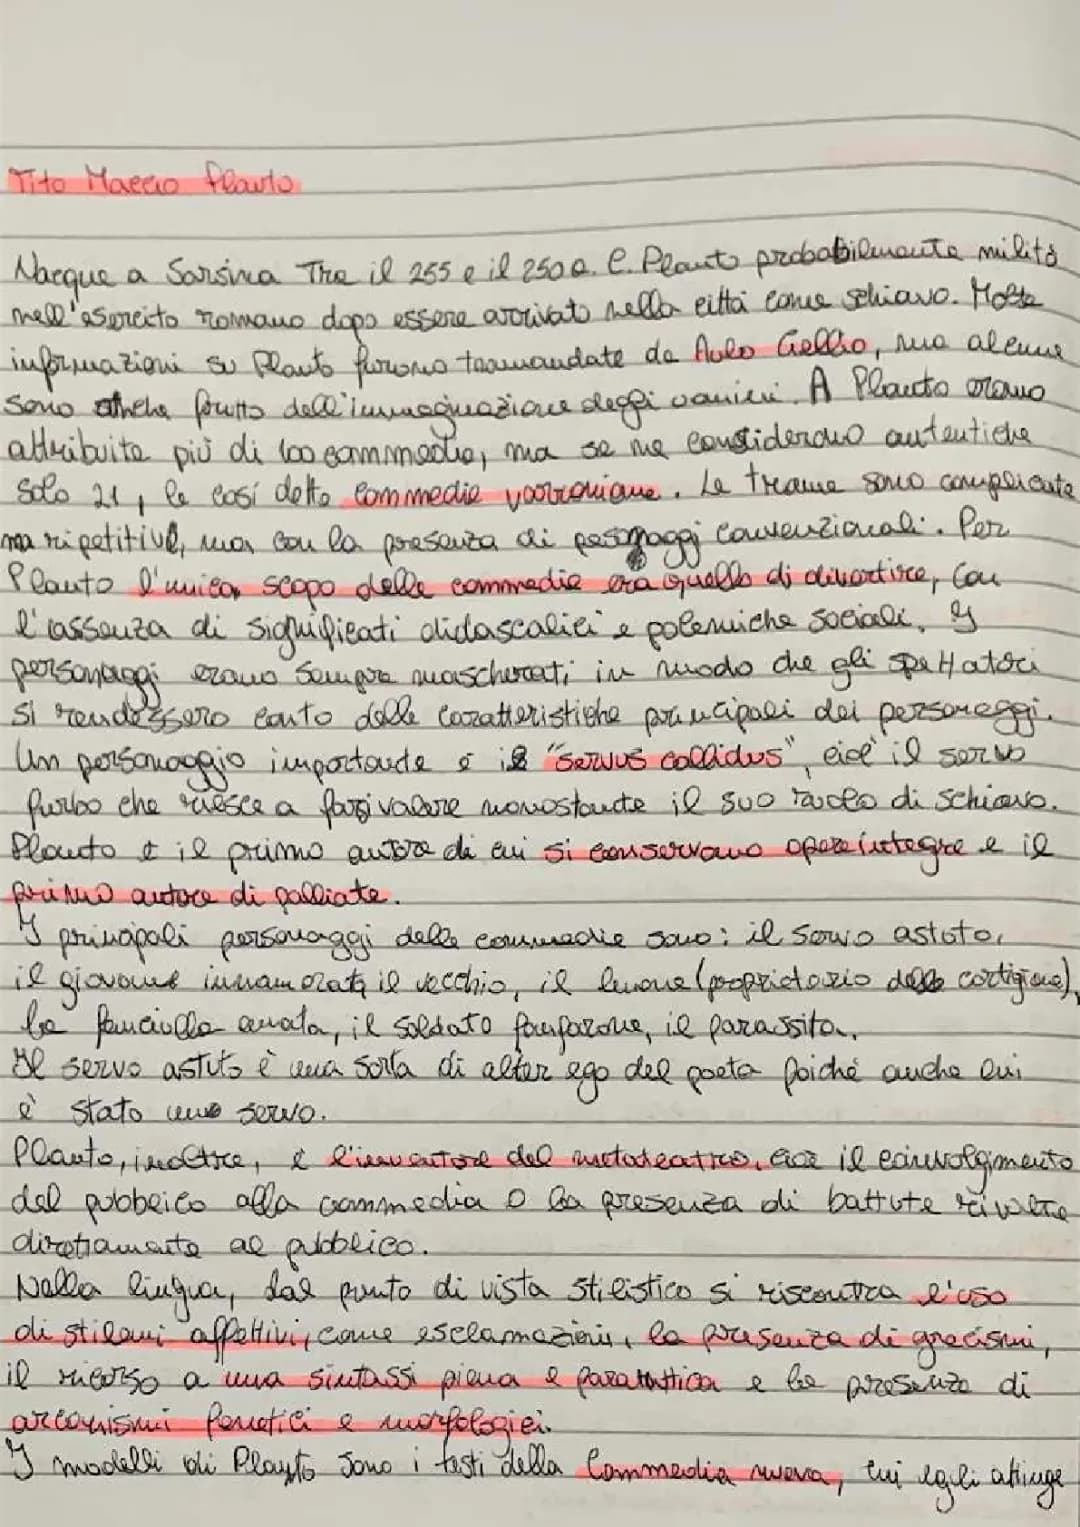 Tito Maccio Plauto
Nacque a Sarsina Tra il 255 e il 250 a.C. Plauto probabilmente militò
nell'esercito romano dopo essere arrivato nella città come schiavo. Molte
informazioni su Plauto furono tramandate da Aulo Gellio, ma alcune
sono anche frutto dell'immaginazione degli uomini. A Plauto erano
attribuite più di 100 commedie, ma se ne considerano autentiche
solo 21, le così dette commedie varroniane. Le trame sono complicate
ma ripetitive, ma con la presenza di personaggi convenzionali. Per
Plauto l'unico scopo delle commedie era quello di divertire, con
l'assenza di significati didascalici e polemiche sociali. I
personaggi erano sempre mascherati in modo che gli spettatori
si rendessero conto delle caratteristiche principali dei personaggi.
Un personaggio importante è il "servus callidus", cioè il servo
furbo che riesce a farsi valere nonostante il suo ruolo di schiavo.
Plauto è il primo autore di cui si conservano opere integre e il
primo autore di palliate.
I principali personaggi delle commedie sono: il servo astuto,
il giovane innamorato, il vecchio, il lenone (proprietario delle cortigiane),
la fanciulla amata, il soldato fanfarone, il parassita.
Il servo astuto è una sorta di alter ego del poeta poiché anche lui
è stato uno servo.
Plauto, inoltre, è l'inventore del metateatro, cioè il coinvolgimento
del pubblico alla commedia o la presenza di battute rivolte
direttamente al pubblico.
Nella lingua, dal punto di vista stilistico si riscontra l'uso
di stilemi affettivi, come esclamazioni, la presenza di grecismi,
il ricorso a una sintassi piana e paratattica e la presenza di
arcaismi fonetici e morfologici.
I modelli di Plauto sono i testi della Commedia nuova, cui egli attinge